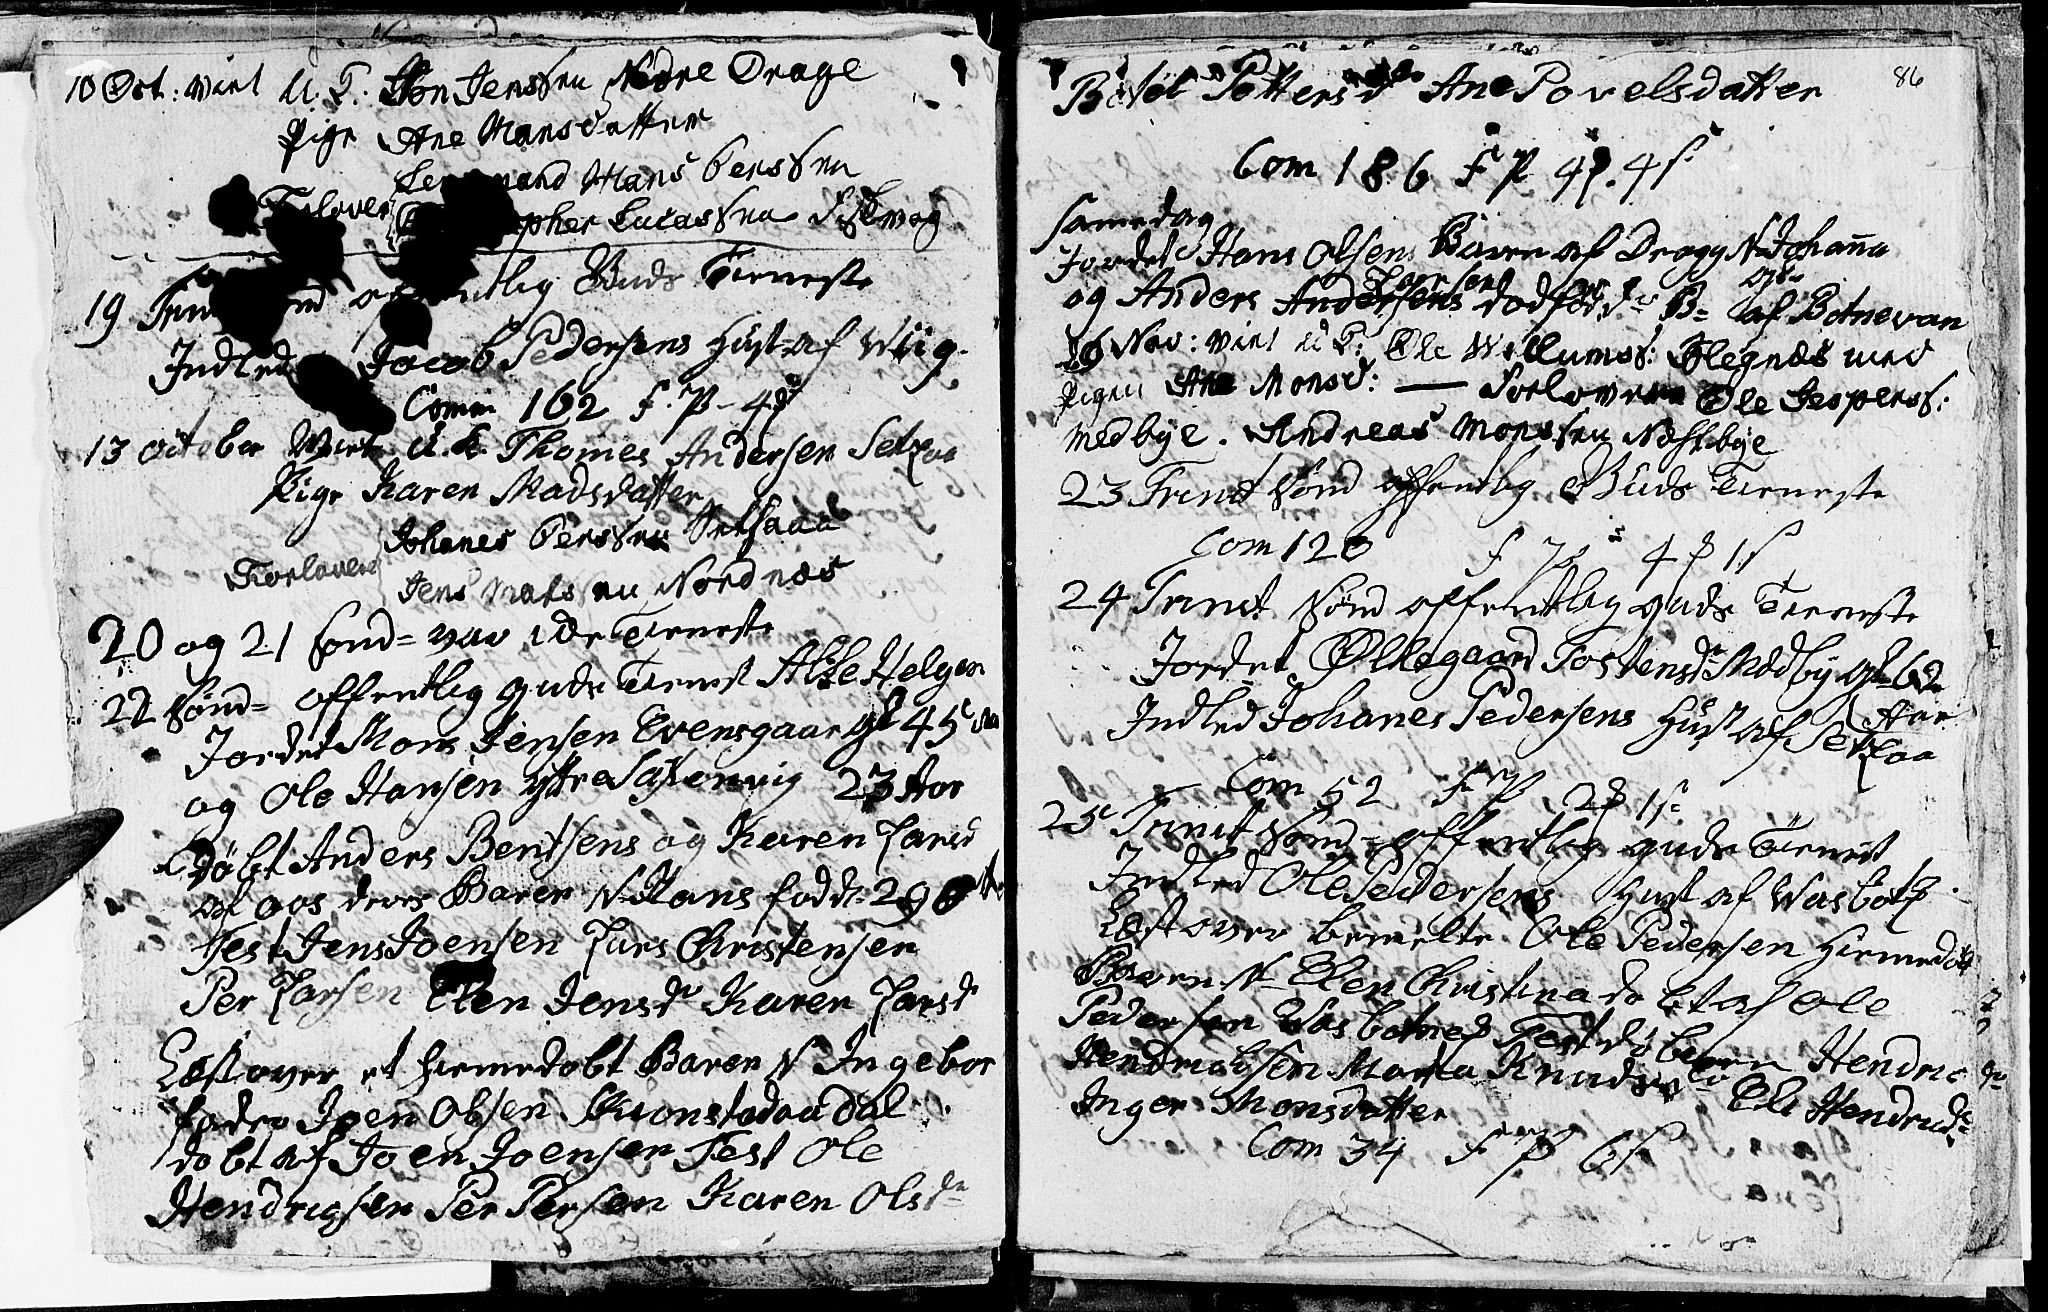 10 Oct: viet U. T. Jon Jenssen Nedre Drage
Pige Ane Mansdatter
mand Hans Perssen
Forlover pher Lucassen
19 Trin offentlig Guds Tieneste
Indled Jacob Pedersens Hust af Wiig
Comm 162 F. P - 4
13 October Viet U. K. Thomes Andersen Setzaa
Pige Karen Madsdatter
Johanes Perssen Setsaaa
Forlovere
Jens Matssen Nordnæs
20 og 21 Sønd= var i de Tieneste
22 Sønd= offentlig guds Tienest Alle Helgen
Jordet Mons Jensen Evensgaar gl 45
og Ole Hansen yttre Saxenvig 23 Aar
Døbt Anders Bentsens og Karen Larsd
af aas deres Baren N Hans fødde 29
Test Jens Joensen Lars Christensen
Per Larsen Elen Jensdr Karen Larsd
Læst over et hiemedøbt Baren N Ingebor
fader Joen Olsen Skionstadaadal
døbt af Joen Joensen Test Ole
Hendrigsen Per Persen Karen Olsdr
86
Pettersd Ane Povelsdatter
Com 186 F P 4. 4 s
Samedag
Jordet Hans Olsens Baren af Dragg N Johanna
og Anders Andersens dødfød B= af Botnevan
Nov: viet U T: Ole Willums: med
Pigen Ane Monsd: — Forlovere Ole Jespers:
Medbye. Andreas Monssen Næstbye
23 Trinit Sønd offentlig Guds Tieneste
Com 120 F P 4 1 s
24 Trinit Sønd offentlig guds Tieneste
Jordet Ollegaard Tostensdr Medby gl 62
Aar
Indled Johanes Pedersens Hust af Setzaa
Com 52 F P 2 1 s
25 Trinit Sønd= offentlig guds Tienest
Indled Ole Pedersens Hust af Wasbotz
Læst over bemelte Ole Pedersen hiemedøbt
Baren N= Elen Christina døbt af Ole
Pedersen Wasbotned Test Hendric
Hendrichsen Marta Knudsdr Ele Hendricsdr
Inger Monsdatter
Com 34 F P 6 s